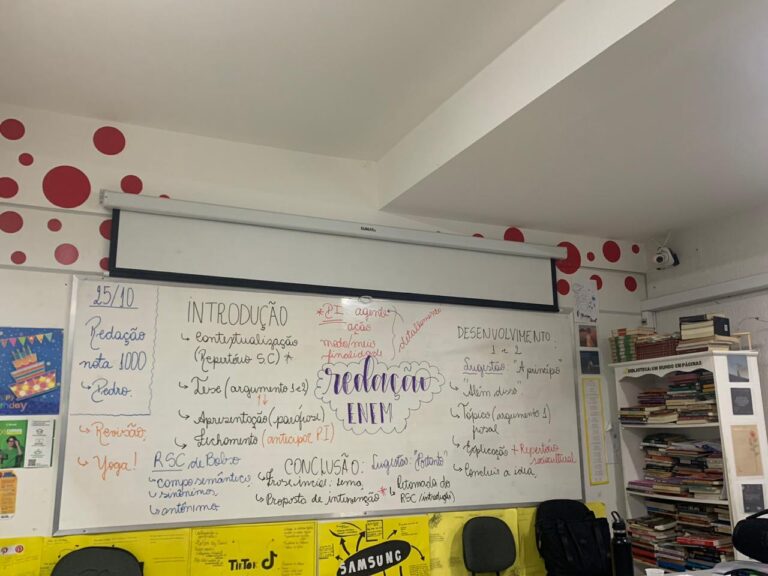 25/10
Redação
nota 1000
↳ Pedro.
↳ Revisão,
↳ Yoga!
INTRODUÇÃO
↳ Contextualização
(Repertório SC) *
↳ Tese (argumento 1 e 2)
↳ Apresentação (paráfrase)
↳ Fechamento (anticipat PI)
* PI: agente
ação
modo/meio
finalidade
detalhamento
redação
ENEM
DESENVOLVIMENTO:
1 e 2
Sugestão: "A princípio"
↳ "Além disso"
↳ Tópico (argumento 1)
frasal
↳ Explicação + Repertório
sociocultural
↳ Concluir a ideia,
RSC de Bolso
↳ campo semântico,
↳ sinônimos,
↳ antônimo
CONCLUSÃO: Sugestão: "Portanto"
↳ Frase inicial: tema,
↳ Proposta de intervenção *
↳ Retomada do
RSC (introdução)
BIBLIOTECA: UM MUNDO EM PÁGINAS
TIKTOK
SAMSUNG